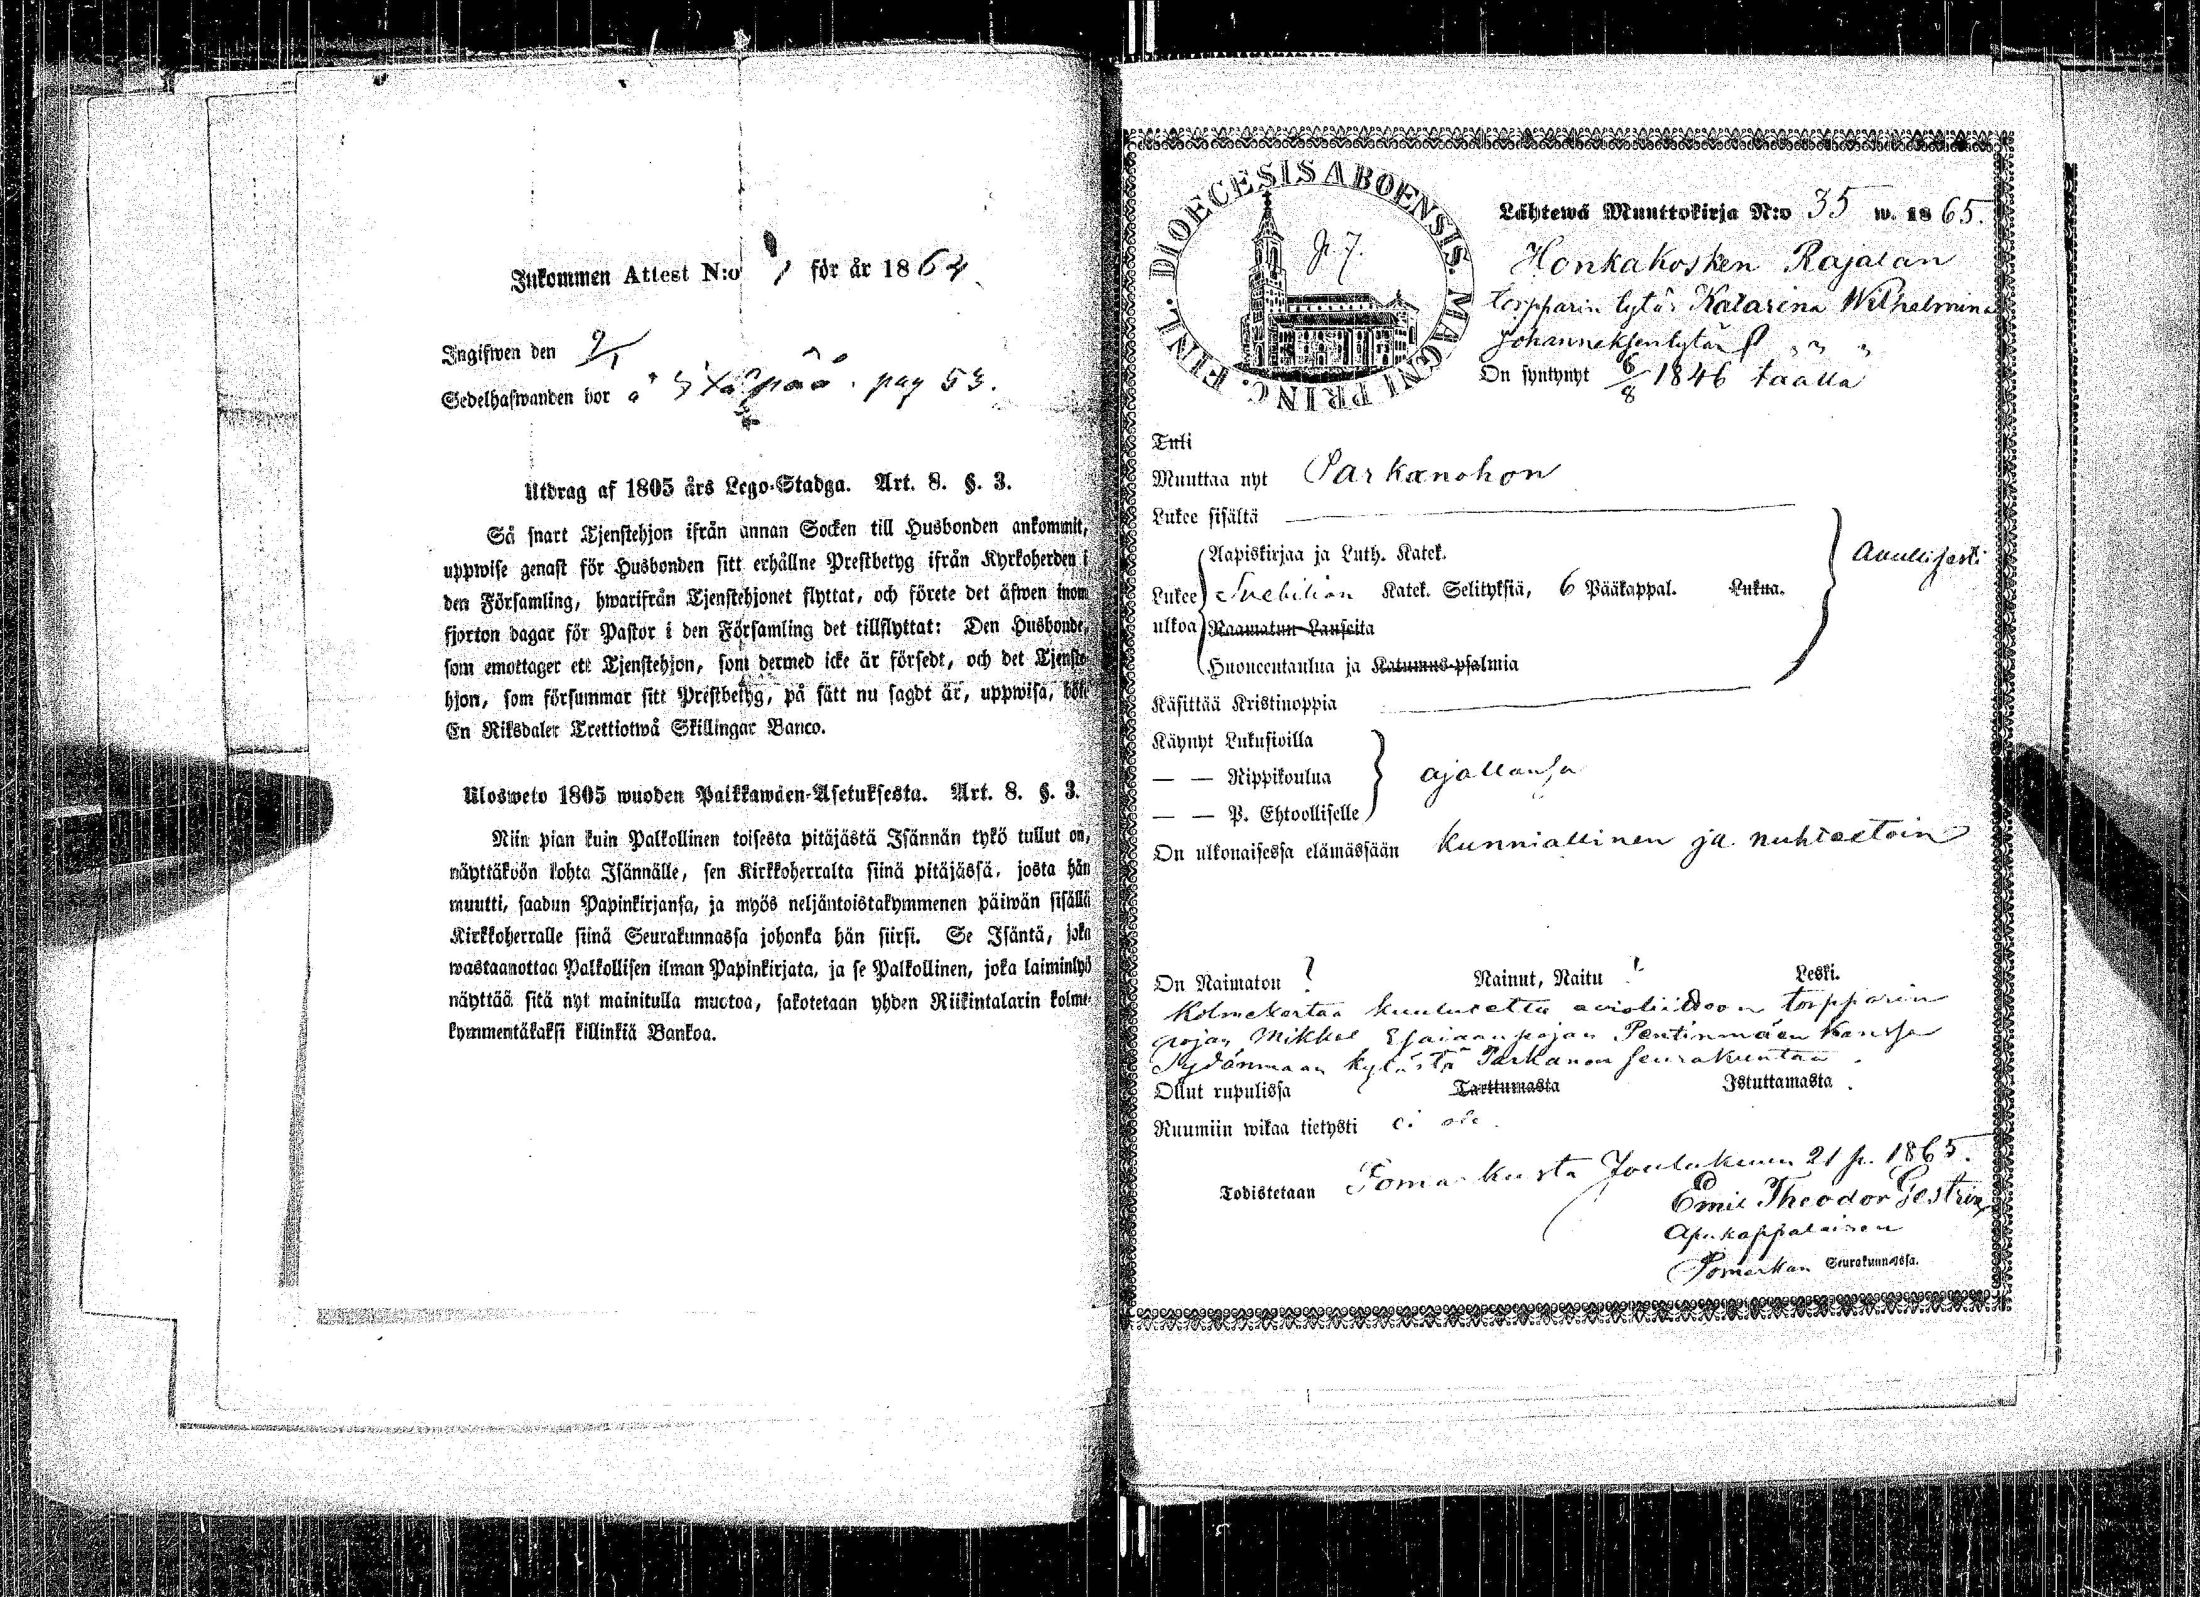 Inkommen Attest N:o 1 för år 1864
Ingifwen den 9/1
Sedelhafwanden bor å pag 53.
Utdrag af 1805 års Lego-Stadga. Art. 8. §. 3.
Så snart Tjenstehjon ifrån annan Socken till Husbonden ankommit,
uppwise genast för Husbonden sitt erhållne Prestbetyg ifrån Kyrkoherden i
den Församling, hwarifrån Tjenstehjonet flyttat, och förete det äfwen inom
fjorton dagar för Pastor i den Församling det tillflyttat: Den Husbonde,
som emottager ett Tjenstehjon, som dermed icke är försedt, och det Tjenste-
hjon, som försummar sitt Prestbetyg, på sätt nu sagdt är, uppwisa, böte
En Riksdaler Trettiotwå Skillingar Banco.
Ulosweto 1805 wuoden Palkkawäen-Asetuksesta. Art. 8. §. 3.
Niin pian kuin Palkollinen toisesta pitäjästä Isännän tykö tullut on,
näyttäköön kohta Isännälle, sen Kirkkoherralta siinä pitäjässä, josta hän
muutti, saadun Papinkirjansa, ja myös neljäntoistakymmenen päiwän sisällä
Kirkkoherralle siinä Seurakunnassa johonka hän siirsi. Se Isäntä, joka
wastaanottaa Palkollisen ilman Papinkirjata, ja se Palkollinen, joka laiminlyö
näyttää sitä nyt mainitulla muotoa, sakotetaan yhden Riikintalarin kolme-
kymmentäkaksi killinkiä Bankoa.
DIOECESIS ABOENSIS. MAGNI PRINC. FINL.
Lähtewä Muuttokirja N:o 35 w. 1865.
Honkakosken Rajalan
torpparin tytär Katarina Wilhelmina
Johanneksentytär
On syntynyt 6/8 1846 täällä
Tuli
Muuttaa nyt Parkanohon
Lukee sisältä
Aapiskirjaa ja Luth. Katek.
Lukee Svebilion Katek. Selityksiä, 6 Pääkappal. Lukua.
ulkoa Raamatun Lauseita
Huoneentaulua ja Katumus-psalmia
Käsittää Kristinoppia
Käynyt Lukusioilla
— — Rippikoulua ajallansa
— — P. Ehtoolliselle
On ulkonaisessa elämässään kunniallinen ja nuhteetoin
On Naimaton Nainut, Naitu Leski.
Kolmekertaa kuulutettu avioliittoon torpparin
pojan Mikkel Esaiaanpojan Pentinmäen kanssa
Sydänmaan kylästä Parkanon seurakuntaa
Ollut rupulissa Tarttumasta Istuttamasta.
Ruumiin wikaa tietysti ei ole.
Todistetaan Pomarkusta Joulukuun 21 p. 1865.
Emil Theodor Gestrin
Apukappalainen
Pomarkun Seurakunnassa.